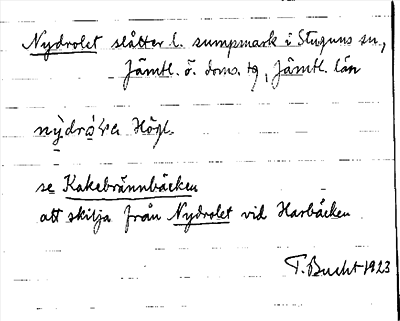 Nydrolet slåtter l. sumpmark i Stuguns sn,
Jämtl. ö. doms. tg, Jämtl. län
Högl.
se Kakebrännbäcken
att skilja från Nydrolet vid Harbäcken
T. Bucht 1923